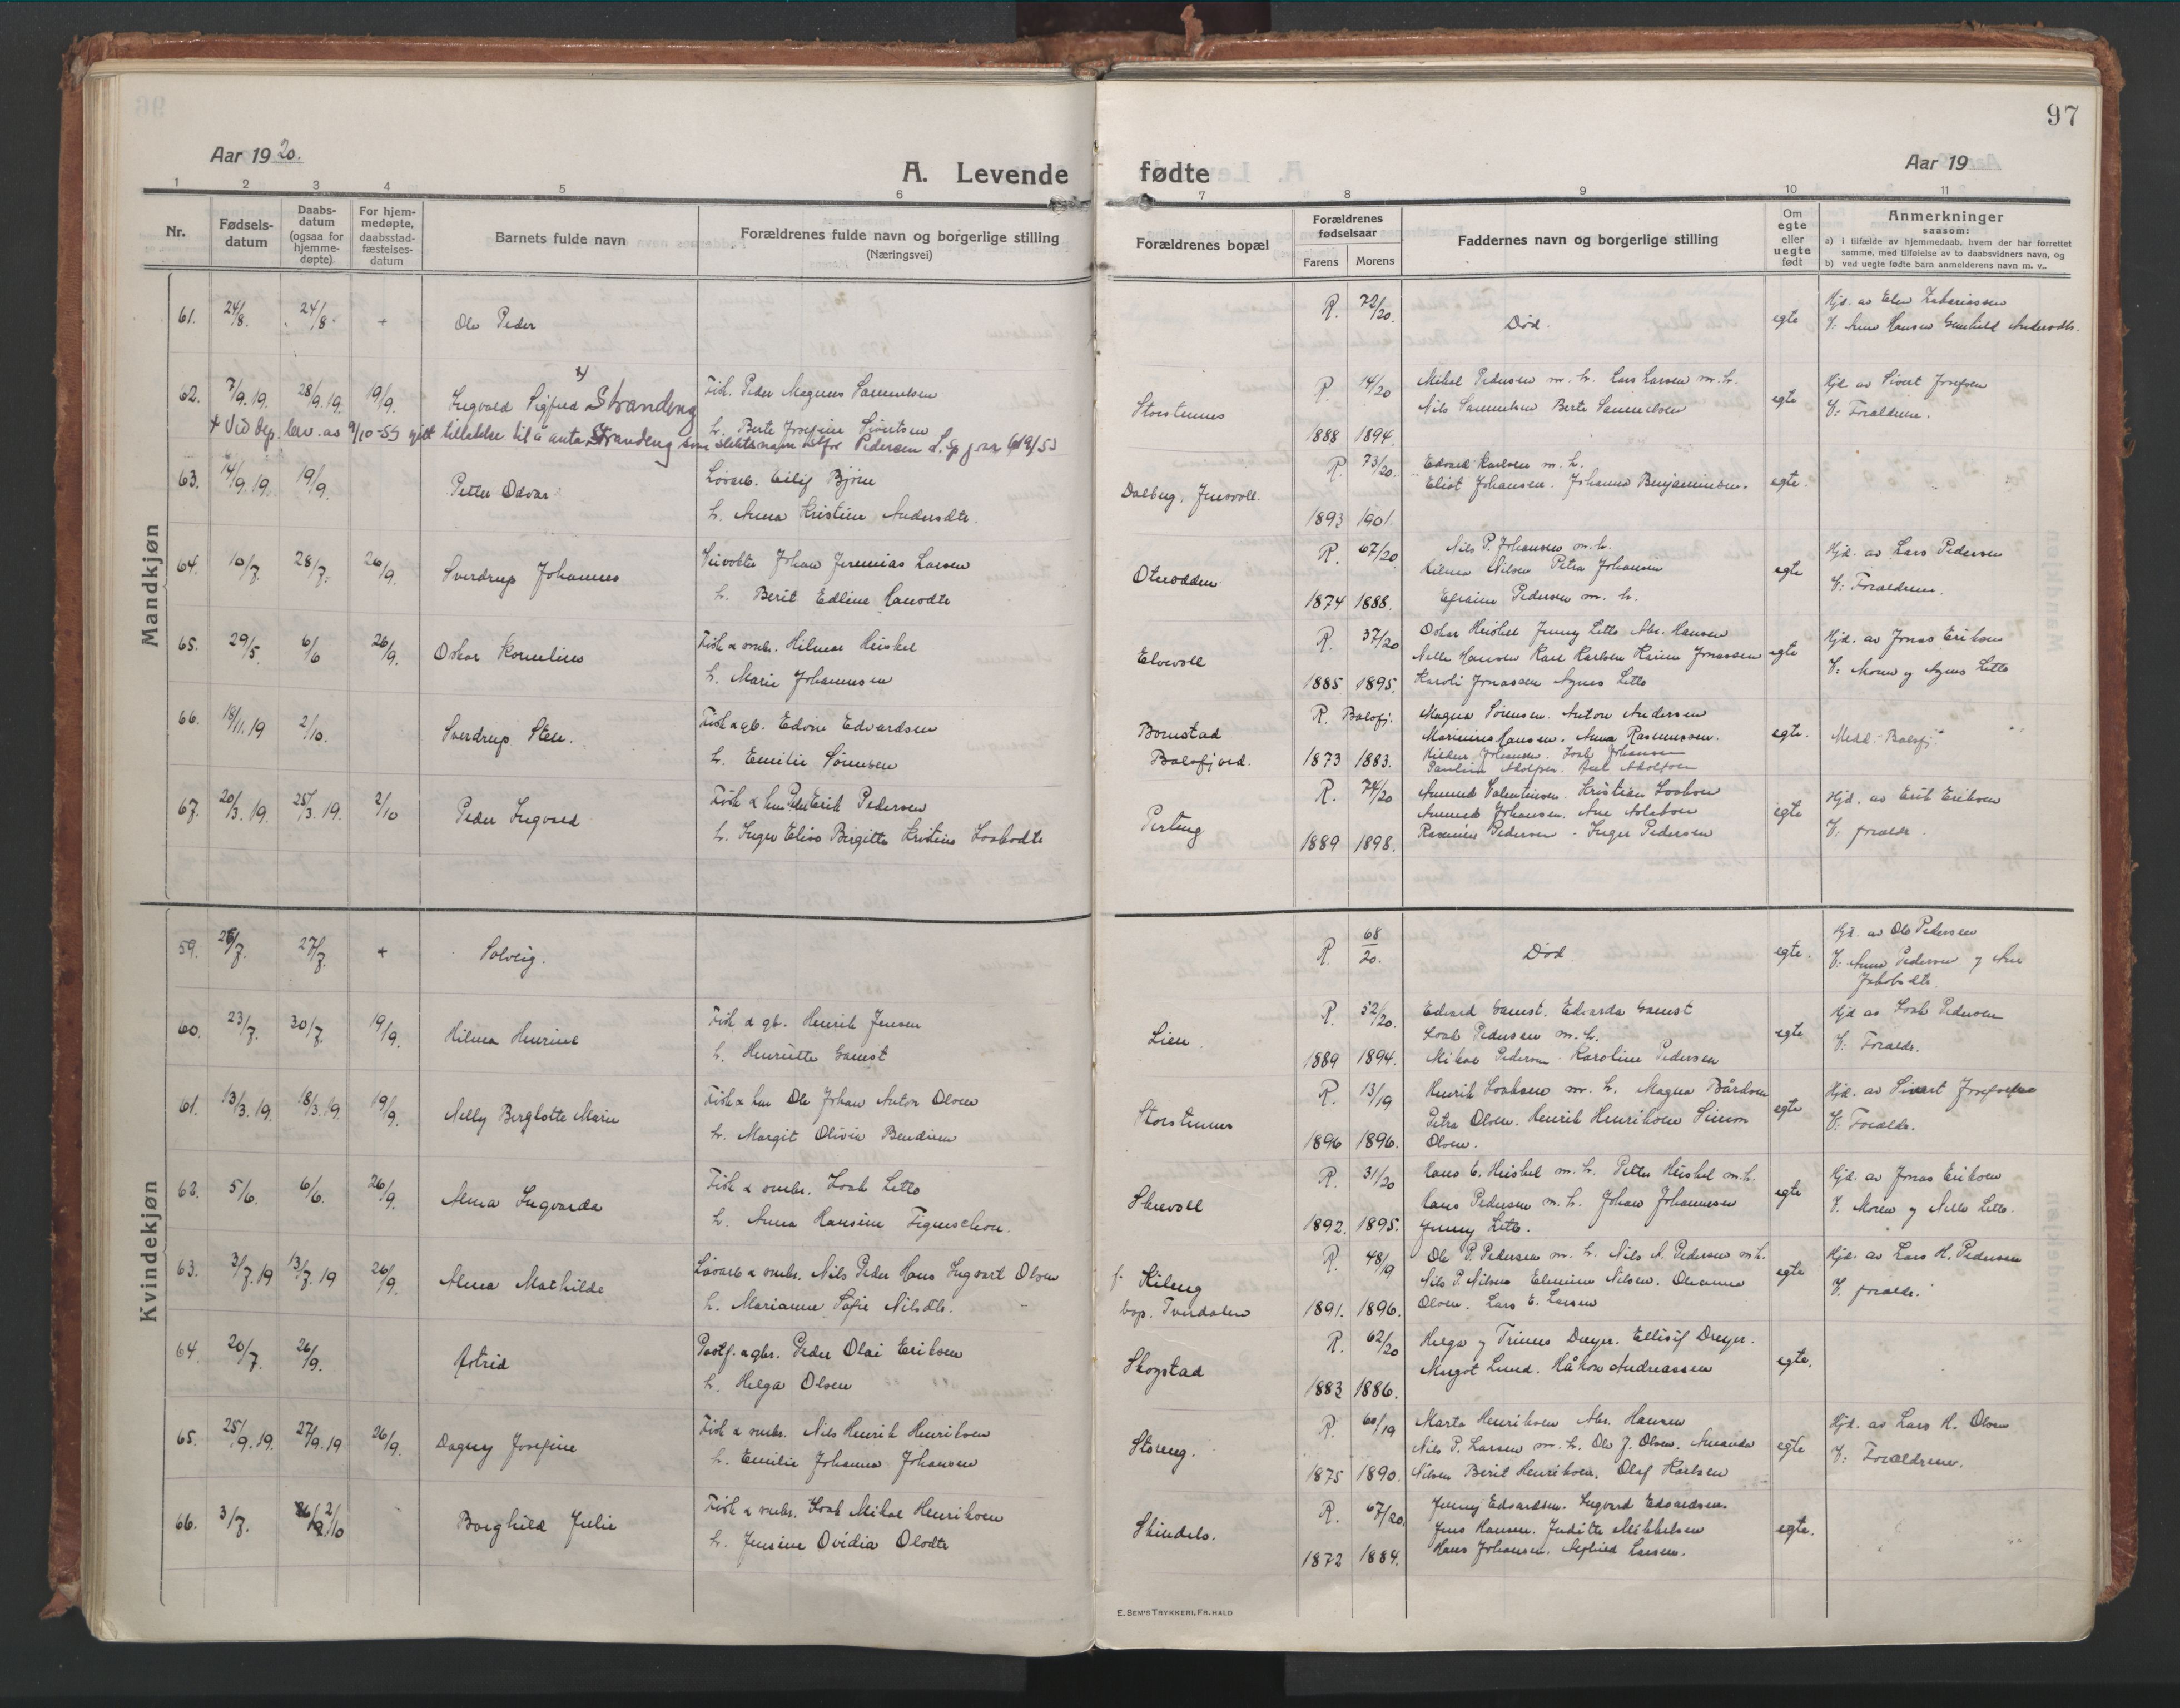 Aar 1920.
A. Levende
1 2 3 4 5 6
Nr.
Fødsels-
datum
Daabs-
datum
(ogsaa for
hjemme-
døpte)
For hjem-
medøpte,
daabsstad-
fæstelses-
datum
Barnets fulde navn
Forældrenes fulde navn og borgerlige stilling
(Næringsvei)
Mandkjøn
61. 24/8. 24/8. + Ole Peder
62. 7/9.19. 28/9.19. 19/9. Ingvald Sigfred Strandeng x)
Fisk. Peder Magnus Samuelsen
h. Berte Josefine Sivertsen
+ Vid dep. brev. av 9/10-53 gitt tillatelse til å anta Strandeng som slektsnavn istfor Pedersen
63. 14/9.19. 19/9. Petter Odvar
Løsarb. Eilif Bjørn
h. Anna Kristine Andersdtr.
64. 10/7. 28/7. 26/9. Sverdrup Johannes
Johan Jeremias Larsen
h. Berit Edline Hansdtr
65. 29/5. 6/6 26/9. Oskar Kornelius
Fisk & smbr. Hilmar Heiskel
h. Marie Johannesen
66. 18/11.19 2/10. Sverdrup Sten.
Fisk & gb. Edvin Edvardsen
h. Emilie Sørensen
67. 20/3.19. 25/3.19. 2/10 Peder Ingvald
Fisk & Peder Erik Pedersen
h. Inger Elise Birgitte Kristine Isaksdtr
Kvindekjøn
59. 26/7. 27/7. + Solveig.
60. 23/7. 30/7. 19/9. Hilma Henrine
Fisk. & gb. Henrik Jensen
h. Henriette Gamst
61. 13/3.19. 18/3.19. 19/9. Nelly Berglotte Marie
Fisk & Ole Johan Anton Olsen
h. Margit Olivia Bendiksen
62. 5/6. 6/6. 26/9. Alma Ingvarda
Fisk & smbr. Isak Letto
h. Anna Hansine Figenschou.
63. 3/7.19 13/7.19 26/9. Alma Mathilde
Løsarb & smbr. Nils Peder Hans Ingvart Olsen
h. Marianne Sofie Nilsdtr.
64. 20/7. 26/9. Astrid
Postf. & gbr. Peder Olai Eriksen
h. Helga Olsen
65. 25/9.19. 27/9.19 26/9. Dagny Josefine
Fisk & smbr. Nils Henrik Henriksen
h. Emilie Johanna Johansen
66. 3/7. 2/10 Borghild Julie
Fisk & smbr. Isak Mikal Henriksen
h. Jensine Ovidia Olsdtr
97
fødte
Aar 19
7 8 9 10 11
Forældrenes bopæl
Forældrenes
fødselsaar
Farens Morens
Faddernes navn og borgerlige stilling
Om
egte
eller
uegte
født
Anmerkninger
saasom:
a) i tilfælde av hjemmedaab, hvem der har forrettet
samme, med tilføielse av to daabsvidners navn, og
b) ved uegte fødte barn anmelderens navn m. v..
R. 72/20. Død. egte
Hjd. av Elen Zakariassen
V: Anne Hansen Gunhild Andersdtr.
Storstennes R. 14/20 1888 1894.
Mikal Pedersen m. h. Lars Larsen m. h.
Nils Samuelsen Berte Samuelsen
egte
Hjd. av Sivert Josefsen
V: Forældrene.
Dalberg, R. 73/20. 1893 1901.
Edvard Karlsen m. h.
Eliot Johansen. Johanna Benjaminsen.
egte.
R. 67/20 1874 1888.
Nils P. Johansen m. h.
Nilsen Petra Johansen
Efraim Pedersen m. h.
egte
Hjd. av Lars Pedersen
V: Forældrene.
Elvevoll R. 37/20 1885 1895.
Oskar Heiskel Jenny Letto Abr. Hansen
Nelle Hansen Kare Karlsen Jonassen
Karoli Jonassen Agnes Letto
egte
Hjd. av Jonas Eriksen
V: Moren og Agnes Letto
Bomstad
Balsfjord. R. Balsfj. 1873 1883.
Magna Sørensen. Anton Andersen
Hansen. Anna Rasmussen.
Johansen. Isak Johansen
Pauline Adolfsen. Adolfsen
egte.
Medd. Balsfj.
Perteng R. 74/20 1889 1898.
Valentinsen. Kristian Isaksen
Johansen. Ane
Rasmine Pedersen. Inger Pedersen
egte
Hjd. av Erik Eriksen
V: forældr.
R. 68/20. Død. egte.
Hjd. av Ole Pedersen
V. Anna Pedersen og Ane
Jakobsdtr.
Lien. R. 52/20. 1889 1894.
Edvard Gamst. Edvarda Gamst
Isak Pedersen m. h.
Mikal Pedersen. Karoline Pedersen
egte
Hjd av Isak Pedersen
V: Forældr.
Storstennes R. 13/19 1896 1896.
Henrik Isaksen m. h. Magna Bårdsen
Petra Olsen. Henrik Henriksen Simon
Olsen.
egte
Hjd. av Sivert Josefsen
V: Forældr.
Skrevoll R. 31/20 1892. 1895.
Hans E. Heiskel m. h. Petter Heiskel m. h.
Hans Pedersen m. h. Johan Johannesen
Jenny Letto.
egte
Hjd. av Jonas Eriksen
V. Moren og Nelle Letto.
f. Kileng
bop. Tverdalen R. 48/19 1891. 1896.
Ole P. Pedersen m. h. Nils A. Pedersen m. h.
Nils P. Nilsen Elmine Nilsen. Oleanna
Olsen. Lars E. Larsen
egte
Hjd. av Lars H. Pedersen
V. forældr.
Skogstad R. 62/20 1883 1886.
Helga og Trines Dreyer. Ellisif Dreyer.
Margot Lund. Håkon Andreassen
egte.
Storeng. R. 60/19 1875 1890.
Marta Henriksen Abr. Hansen
Nils P. Larsen m. h. Ole J. Olsen. Amanda
Nilsen Berit Henriksen. Olaf Karlsen
egte
Hjd. av Lars H. Olsen
V: Forældrene.
Skindelv. R. 67/20. 1872 1884.
Jenny Edvardsen. Ingvard Edvardsen.
Jens Hansen. Judithe Mikkelsen
Hans Johansen. Larsen.
egte.
E. SEM'S TRYKKERI, FR. HALD